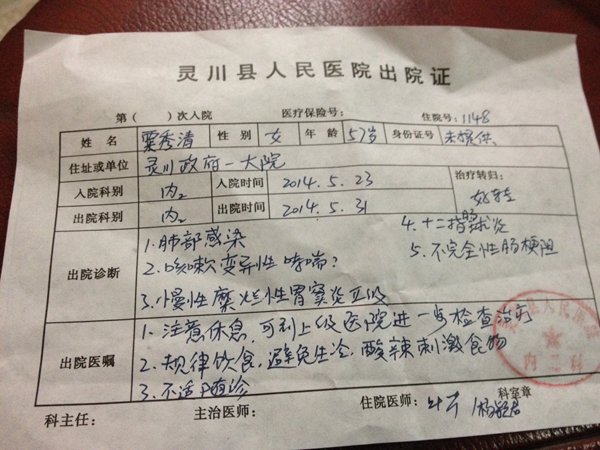 灵川县人民医院出院证
第( )次入院 医疗保险号: 住院号: 1148
姓名 粟秀清 性别 女 年龄 57岁 身份证号 未提供
住址或单位 灵川政府一大院
入院科别 内二 入院时间 2014.5.23 治疗转归:
出院科别 内二 出院时间 2014.5.31 好转
出院诊断
1.肺部感染
2.咳嗽变异性哮喘?
3.慢性糜烂性胃窦炎Ⅱ级
4.十二指肠球炎
5.不完全性肠梗阻
出院医嘱
1.注意休息,可到上级医院进一步检查治疗
2.规律饮食,避免生冷,酸辣刺激食物
3.不适随诊
科主任: 主治医师: 住院医师: 科室章
人民医院
内二科